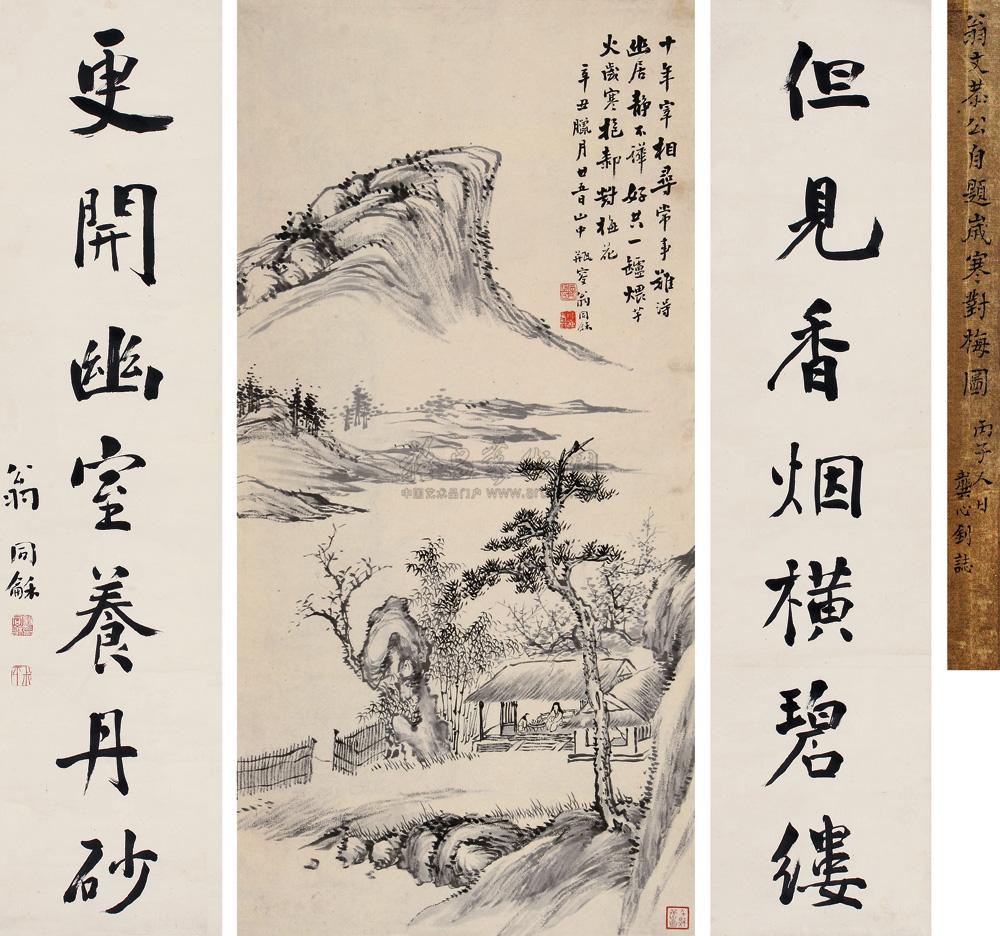 但見香烟橫碧縷
更開幽室養丹砂
翁同龢
十年宰相尋常事難得
幽居靜不譁好共一罏煨芋
火歲寒抱厀對梅花
辛丑臘月廿五日山中瓶
翁同龢
翁文恭公自題歲寒對梅圖
丙子人日
龔心釗誌
中国艺术品门户